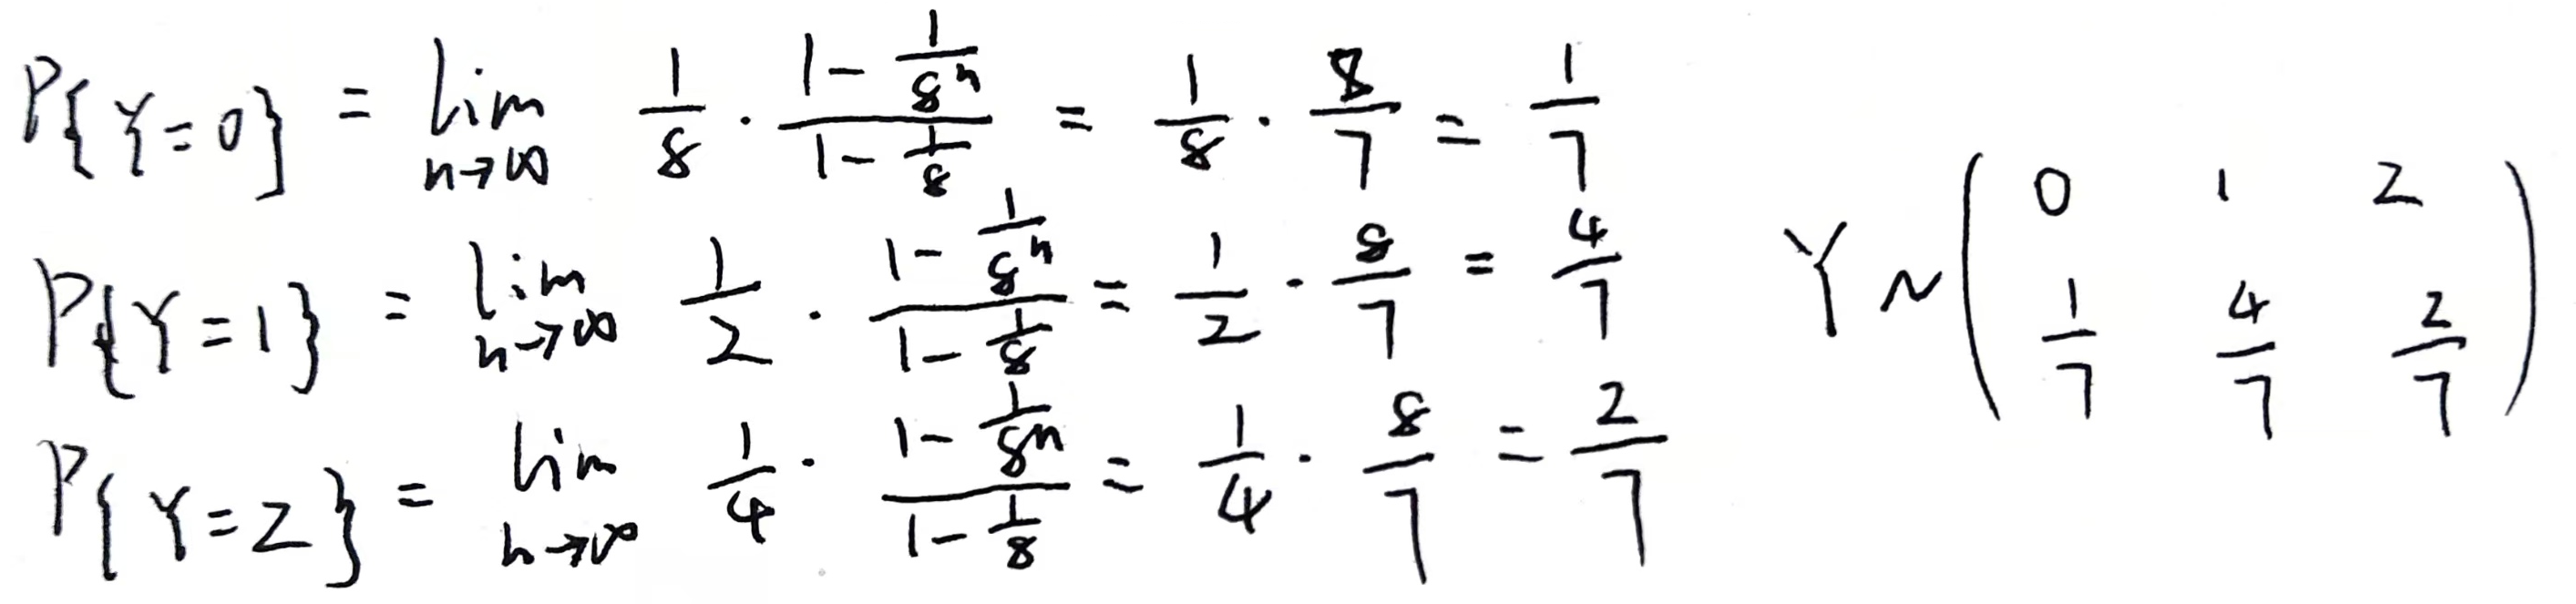 P{Y=0} = lim_{n→∞} 1/8 · (1 - 1/8^n)/(1 - 1/8) = 1/8 · 8/7 = 1/7
P{Y=1} = lim_{n→∞} 1/2 · (1 - 1/8^n)/(1 - 1/8) = 1/2 · 8/7 = 4/7
P{Y=2} = lim_{n→∞} 1/4 · (1 - 1/8^n)/(1 - 1/8) = 1/4 · 8/7 = 2/7
Y ~ ( 0 1 2
1/7 4/7 2/7 )